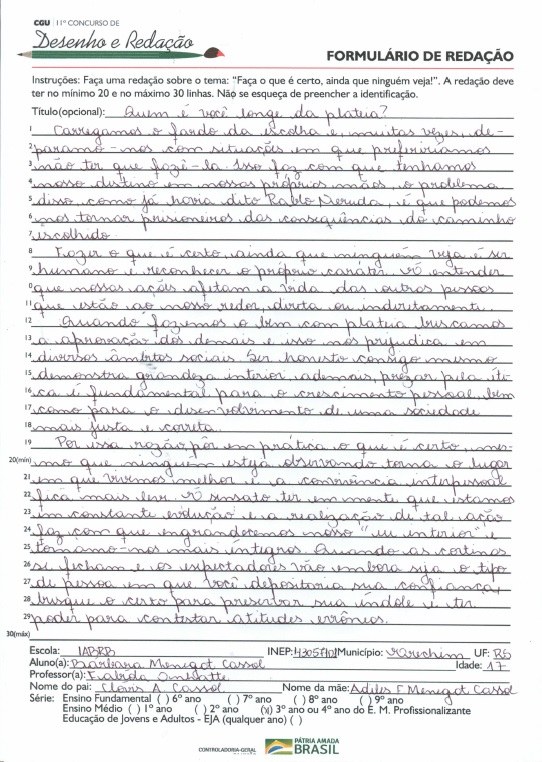 CGU | 11º CONCURSO DE
Desenho e Redação
FORMULÁRIO DE REDAÇÃO
Instruções: Faça uma redação sobre o tema: “Faça o que é certo, ainda que ninguém veja!”. A redação deve
ter no mínimo 20 e no máximo 30 linhas. Não se esqueça de preencher a identificação.
Título(opcional): Quem é você longe da plateia?
1 Carregamos o fardo da escolha e, muitas vezes, de-
2 paramo-nos com situações em que preferiríamos
3 não ter que fazê-la. Isso faz com que tenhamos
4 nosso destino em nossas próprias mãos, o problema
5 disso, como já havia dito Pablo Neruda, é que podemos
6 nos tornar prisioneiros das consequências do caminho
7 escolhido.
8 Fazer o que é certo, ainda que ninguém veja é ser
9 humano e reconhecer o próprio caráter. É entender
10 que nossas ações afetam a vida das outras pessoas
11 que estão ao nosso redor, direta ou indiretamente.
12 Quando fazemos o bem com plateia buscamos
13 a aprovação dos demais e isso nos prejudica em
14 diversos âmbitos sociais. Ser honesto consigo mesmo
15 demonstra grandeza interior, ademais, prezar pela éti-
16 ca é fundamental para o crescimento pessoal, bem
17 como para o desenvolvimento de uma sociedade
18 mais justa e correta.
19 Por essa razão, pôr em prática o que é certo, mes-
20(min) mo que ninguém esteja observando torna o lugar
21 em que vivemos melhor e a convivência interpessoal
22 fica mais leve. É sensato ter em mente que estamos
23 em constante evolução e a realização de tal ação
24 faz com que engrandecemos nosso "eu interior" e
25 tornamo-nos mais íntegros. Quando as cortinas
26 se fecham e os espectadores vão embora seja o tipo
27 de pessoa em que você depositaria sua confiança,
28 busque o certo para preservar sua índole e ter
29 poder para contestar atitudes errôneas.
30(máx)
Escola: IABRB INEP: Município: Erechim UF: RS
Aluno(a): Bárbara Menegot Cassol Idade: 17
Professor(a):
Nome do pai: A. Cassol Nome da mãe: Menegot Cassol
Série: Ensino Fundamental ( ) 6º ano ( ) 7º ano ( ) 8º ano ( ) 9º ano
Ensino Médio ( ) 1º ano ( ) 2º ano (x) 3º ano ou 4º ano do E. M. Profissionalizante
Educação de Jovens e Adultos - EJA (qualquer ano) ( )
CONTROLADORIA-GERAL
PÁTRIA AMADA
BRASIL